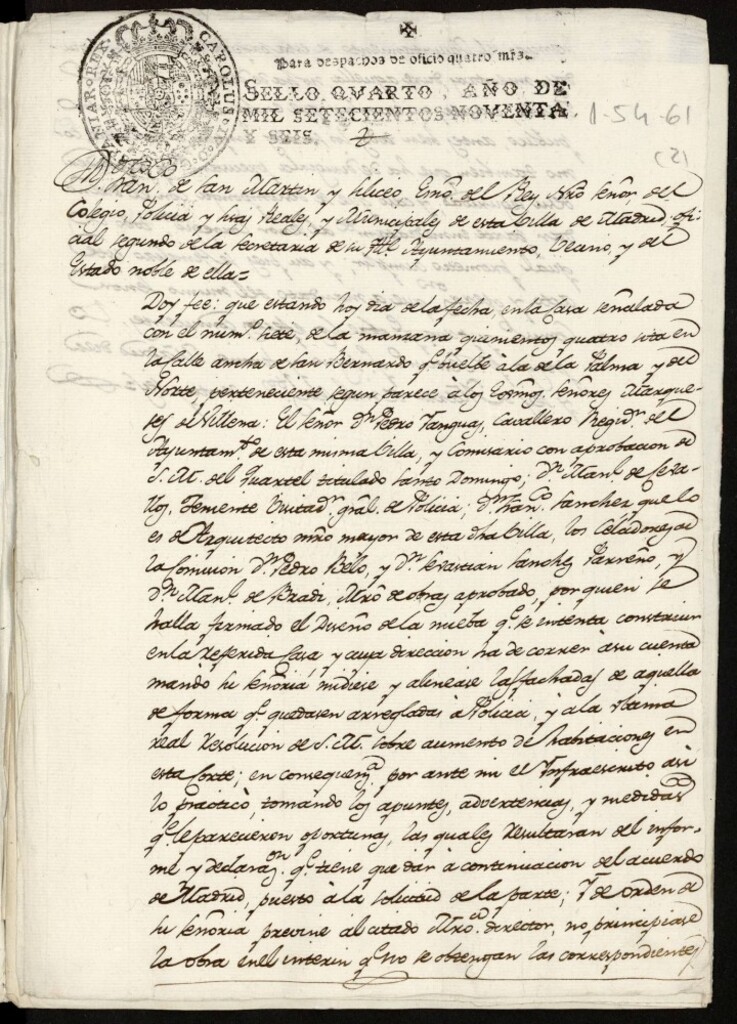 CAROLUS IV D G HISPANIAR REX
Para despachos de oficio quatro mrs.
SELLO QVARTO, AÑO DE
MIL SETECIENTOS NOVENTA
Y SEIS.
1-54-61
(2)
de San Martin y Eno. del Rey Nro Señor del
Colegio, Policia y Reales, y Municipales de esta Villa de Madrid, ofi-
cial segundo de la Secretaria de su Ayuntamiento, Vecino, y del
Estado noble de ella=
Doy fee: que estando hoy dia de la fecha, en la Casa señalada
con el num.º siete, de la manzana quinientos quatro sita en
la Calle ancha de San Bernardo q.e buelbe à la de la Palma y del
Norte, perteneciente segun parece à los Exmos. Señores Marque-
ses de Villena: El Señor D.n Pedro Cavallero Regid.r del
Ayuntam.to de esta misma Villa, y Comisario con aprobacion de
S. M. del Quartel titulado Santo Domingo; D.n Man.l de Zeva-
llos, Teniente Visitad.r gral. de Policia; D.n Fran.co Sanchez que lo
es de Arquitecto mro mayor de esta dha Villa, los Celadores de
la Comision D.n Pedro Belo, y D.n Sevastian Sanchez Parreño, y
D.n Man.l de Bradi, Mrô de obras aprobado, por quien se
halla firmado el Diseño de la nueba q.e se intenta construir
en la referida Casa y cuya direccion ha de correr à su cuenta
mandò su Señoria midiese y alinease las fachadas de aquella
de forma q.e quedasen arregladas à Policia, y à la ultima
real resolucion de S. M. sobre aumento de habitaciones en
esta Corte; en consequen.a por ante mi el Infraescrito asi
lo practicò, tomando los apuntes, advertencias, y medidas
q.e le parecieron oportunas, las quales resultaran del infor-
me y declaraz.on q.e tiene que dar à continuacion del acuerdo
de Madrid, puesto à la solicitud de la parte; Y de orden de
su Señoria previne al citado Mrô. director, no principiase
la obra en el interin q.e no se obtengan las correspondientes